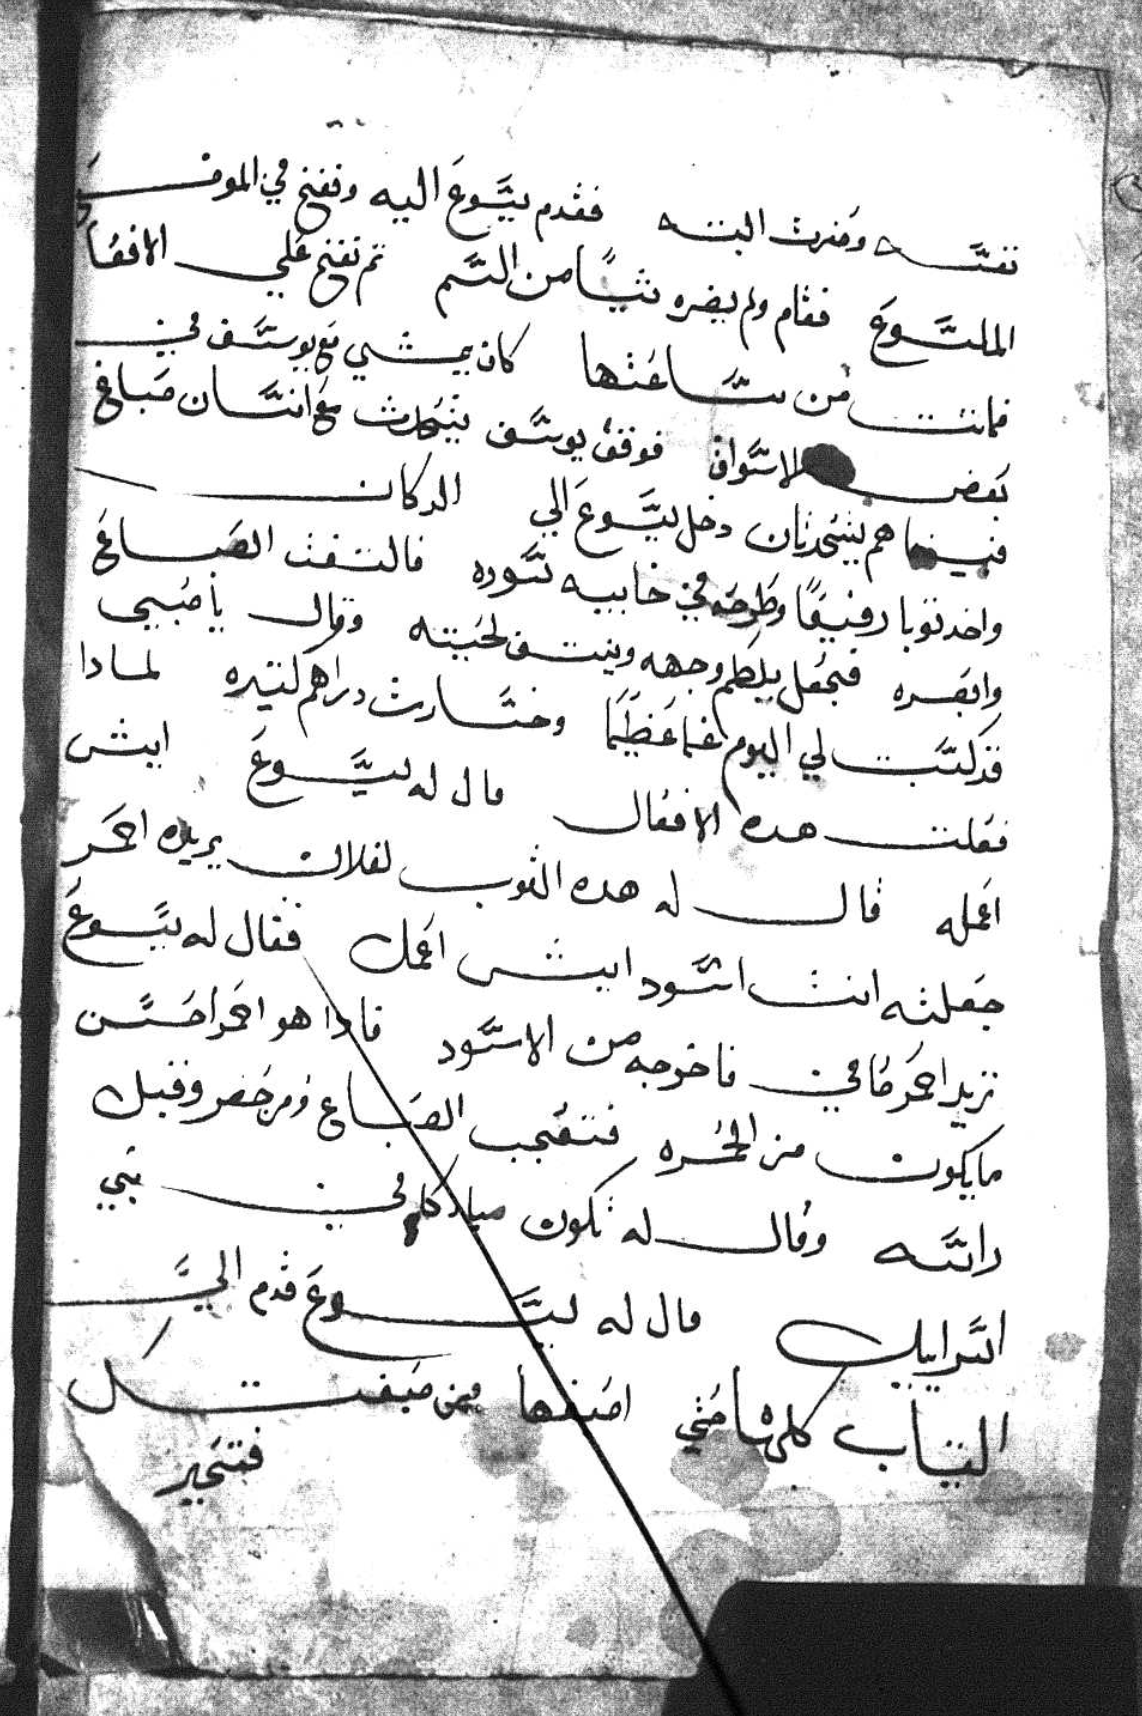 نفسه وضرت البته فقدم يسوع اليه ونفخ في الموضع
الملسوع فقام ولم يضره شيا من السم ثم نفخ علي الافعا
فماتت من ساعتها كان يمشي مع يوسف في
بعض الاسواق فوقف يوسف يتحدث مع انسان صباغ
فبينما هم يتحدثان دخل يسوع الي الدكان
واخد توبا رفيعا وطرحه في خابيه سوده فالتفت الصباغ
وابصره فجعل يلطم وجهه وينتف لحيته وقال يا صبيى
قد كسبت لي اليوم غما عظيما وخسارت دراهم كتيره لمادا
فعلت هده الافعال قال له يسوع ايش
اعمله قال له هده الثوب لفلان يريده احمر
جعلته انت اسود ايش اعمل فقال له يسوع
تريد احمر قافي فاخرجه من الاسود فادا هو احمر احسن
مايكون من الحمره فتعجب الصباغ ومن حضر وقبل
راسه وقال له تكون مباركا في بني
اسراييل قال له يسوع قدم الي
التياب كلها حتي اصبغها فيمن صبغتك
فتتحير